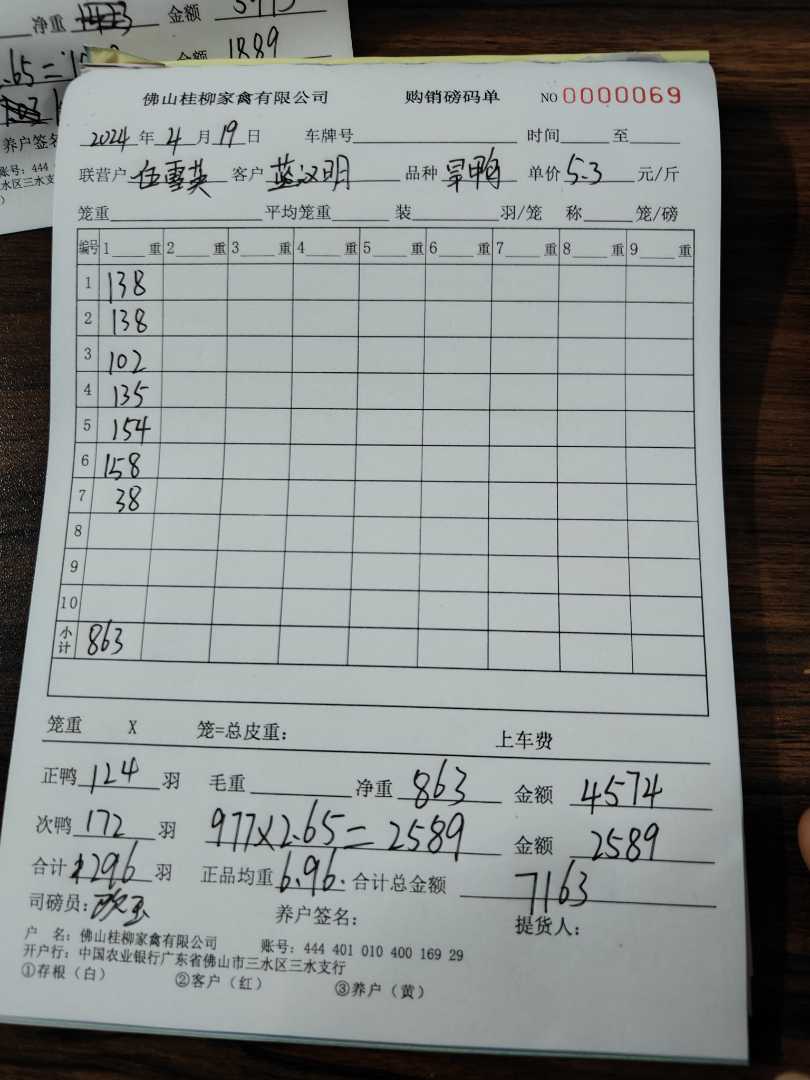 净重 1423 金额
.65= 金额 1889
养户签名
账号: 444
水区三水支
佛山桂柳家禽有限公司 购销磅码单 NO 0000069
2024年4月19日 车牌号 时间 至
联营户 伍雪英 客户 蓝汉明 品种 旱鸭 单价 5.3 元/斤
笼重 平均笼重 装 羽/笼 称 笼/磅
编号 1 重 2 重 3 重 4 重 5 重 6 重 7 重 8 重 9 重
1 138
2 138
3 102
4 135
5 154
6 158
7 38
8
9
10
小计 863
笼重 X 笼=总皮重: 上车费
正鸭 124 羽 毛重 净重 863 金额 4574
次鸭 172 羽 977×2.65=2589 金额 2589
合计 296 羽 正品均重 6.96. 合计总金额 7163
司磅员: 养户签名: 提货人:
户 名: 佛山桂柳家禽有限公司 账号: 444 401 010 400 169 29
开户行: 中国农业银行广东省佛山市三水区三水支行
①存根(白) ②客户(红) ③养户(黄)